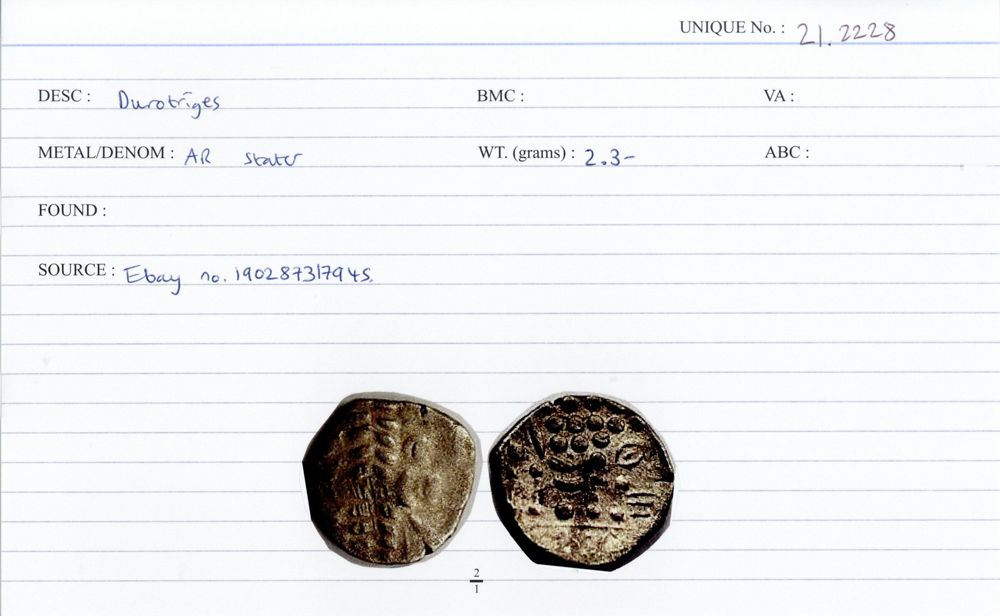 UNIQUE No. : 21.2228
DESC : Durotriges BMC : VA :
METAL/DENOM : AR stater WT. (grams) : 2.3- ABC :
FOUND :
SOURCE : Ebay no. 190287317945.
2
1